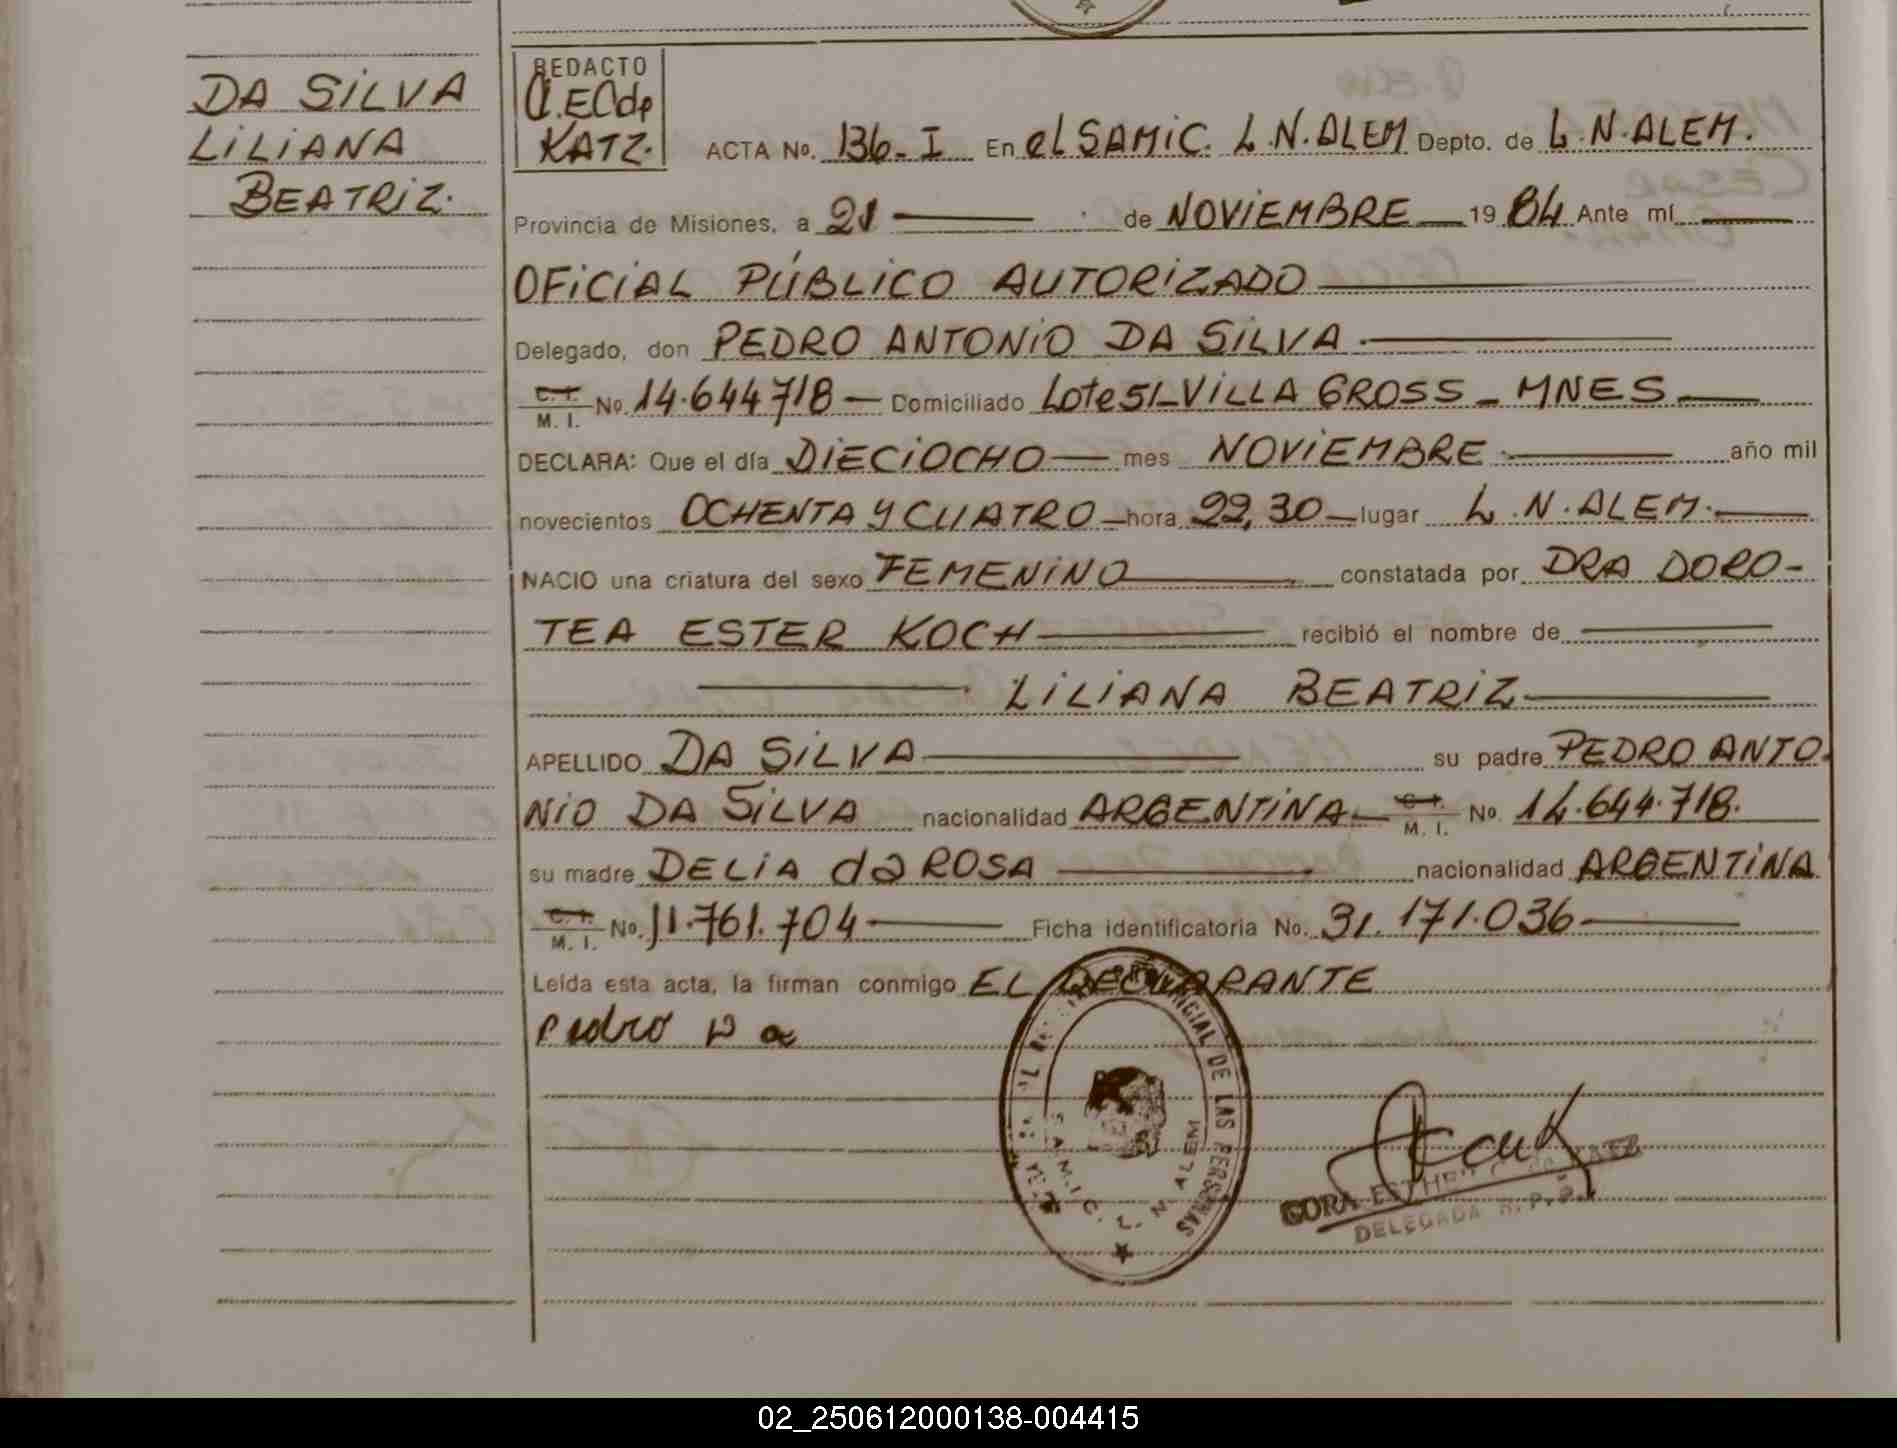 DA SILVA
LILIANA
BEATRIZ.
REDACTO
C.ECde
KATZ.
ACTA No. 136-I En el SAMIC. L.N.ALEM Depto. de L.N.ALEM.
Provincia de Misiones, a 21 de NOVIEMBRE 1984 Ante mí
OFICIAL PÚBLICO AUTORIZADO
Delegado, don PEDRO ANTONIO DA SILVA
C. I.
M. I. No. 14.644718 Domiciliado Lote 51-VILLA GROSS - MNES
DECLARA: Que el día DIECIOCHO mes NOVIEMBRE año mil
novecientos OCHENTA Y CUATRO hora 22,30 lugar L.N.ALEM.
NACIO una criatura del sexo FEMENINO constatada por DRA DORO-
TEA ESTER KOCH recibió el nombre de
LILIANA BEATRIZ
APELLIDO DA SILVA su padre PEDRO ANTO-
NIO DA SILVA nacionalidad ARGENTINA C. I. M. I. No. 14.644.718.
su madre DELIA da ROSA nacionalidad ARGENTINA
C. I.
M. I. No. 11.761.704 Ficha identificatoria No. 31.171.036
Leída esta acta, la firman conmigo EL DECLARANTE
Pedro D a
CIAL DE LAS PERSONAS
S.A.M.I.C. L. N. ALEM
CORA ESTHER C. de KATZ
DELEGADA R. P.
02_250612000138-004415